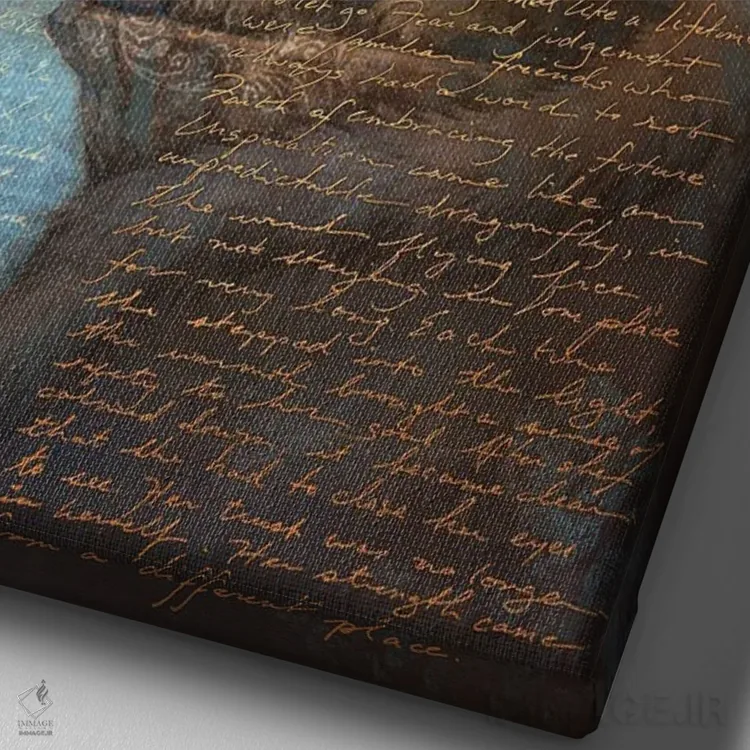 like a lifetime
let go. Fear and judgement
were familiar friends who
always had a word to rob
Faith of embracing the future.
Inspiration came like an
unpredictable dragonfly, in
the wind flying free,
but not staying in one place
for very long. Each time
she stepped into the light,
the warmth brought a sense of
to her soul. Her
it became clear
that she had to close her eyes
to see. Her trust was no longer
in herself. Her strength came
from a different place.
IMMAGE
IMMAGE.IR
IMMAGE.IR